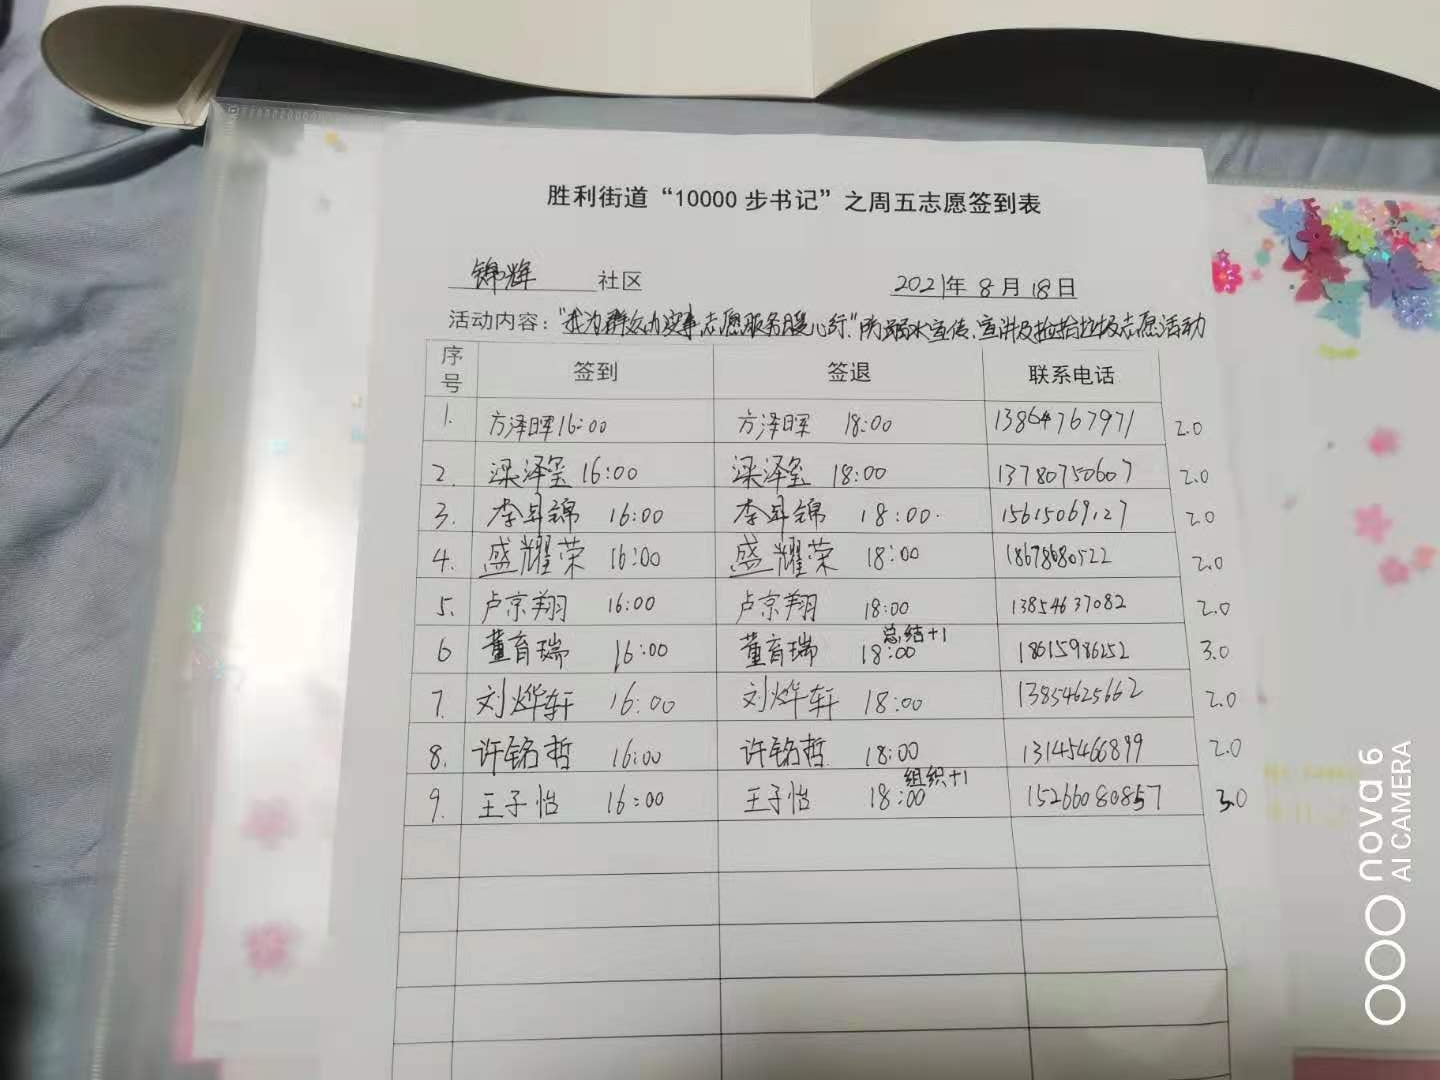 胜利街道“10000步书记”之周五志愿签到表
锦辉 社区 2021年 8月 18日
活动内容：“我为群众办实事志愿服务暖心行”防溺水宣传、宣讲及捡拾垃圾志愿活动
序号 签到 签退 联系电话
1. 方泽晖 16:00 方泽晖 18:00 13864767971 2.0
2. 梁泽玺 16:00 梁泽玺 18:00 13780750607 2.0
3. 李昇锦 16:00 李昇锦 18:00. 15615069127 2.0
4. 盛耀荣 16:00 盛耀荣 18:00 18678680522 2.0
5. 卢京翔 16:00 卢京翔 18:00 13854637082 2.0
总结+1
6 董育瑞 16:00 董育瑞 18:00 18615986252 3.0
7. 刘烨轩 16:00 刘烨轩 18:00 13854625662 2.0
8. 许铭哲 16:00 许铭哲 18:00 13145466899 2.0
组织+1
9. 王子怡 16:00 王子怡 18:00 15266080857 3.0
nova 6
AI CAMERA